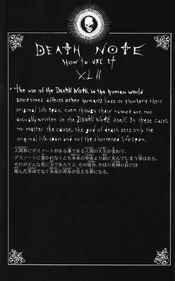 DEATH NOTE
HOW TO USE IT
XLII
• The use of the Death Note in the human world
sometimes affects other human's lives or shortens their
original life-span, even though their names are not
actually written in the Death Note itself. In these cases,
no matter the cause, the god of death sees only the
original life-span and not the shortened life-span.
人間界にデスノートがある事で他の人間の人生が変わり、
デスノートに書かれなくとも本来の寿命より前に死んでしまう事はある。